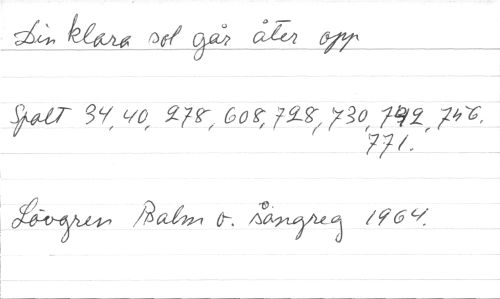 Din klara sol går åter opp
Spalt 34, 40, 278, 608, 728, 730, 742, 746.
771.
Lövgren Psalm o. sångreg 1964.